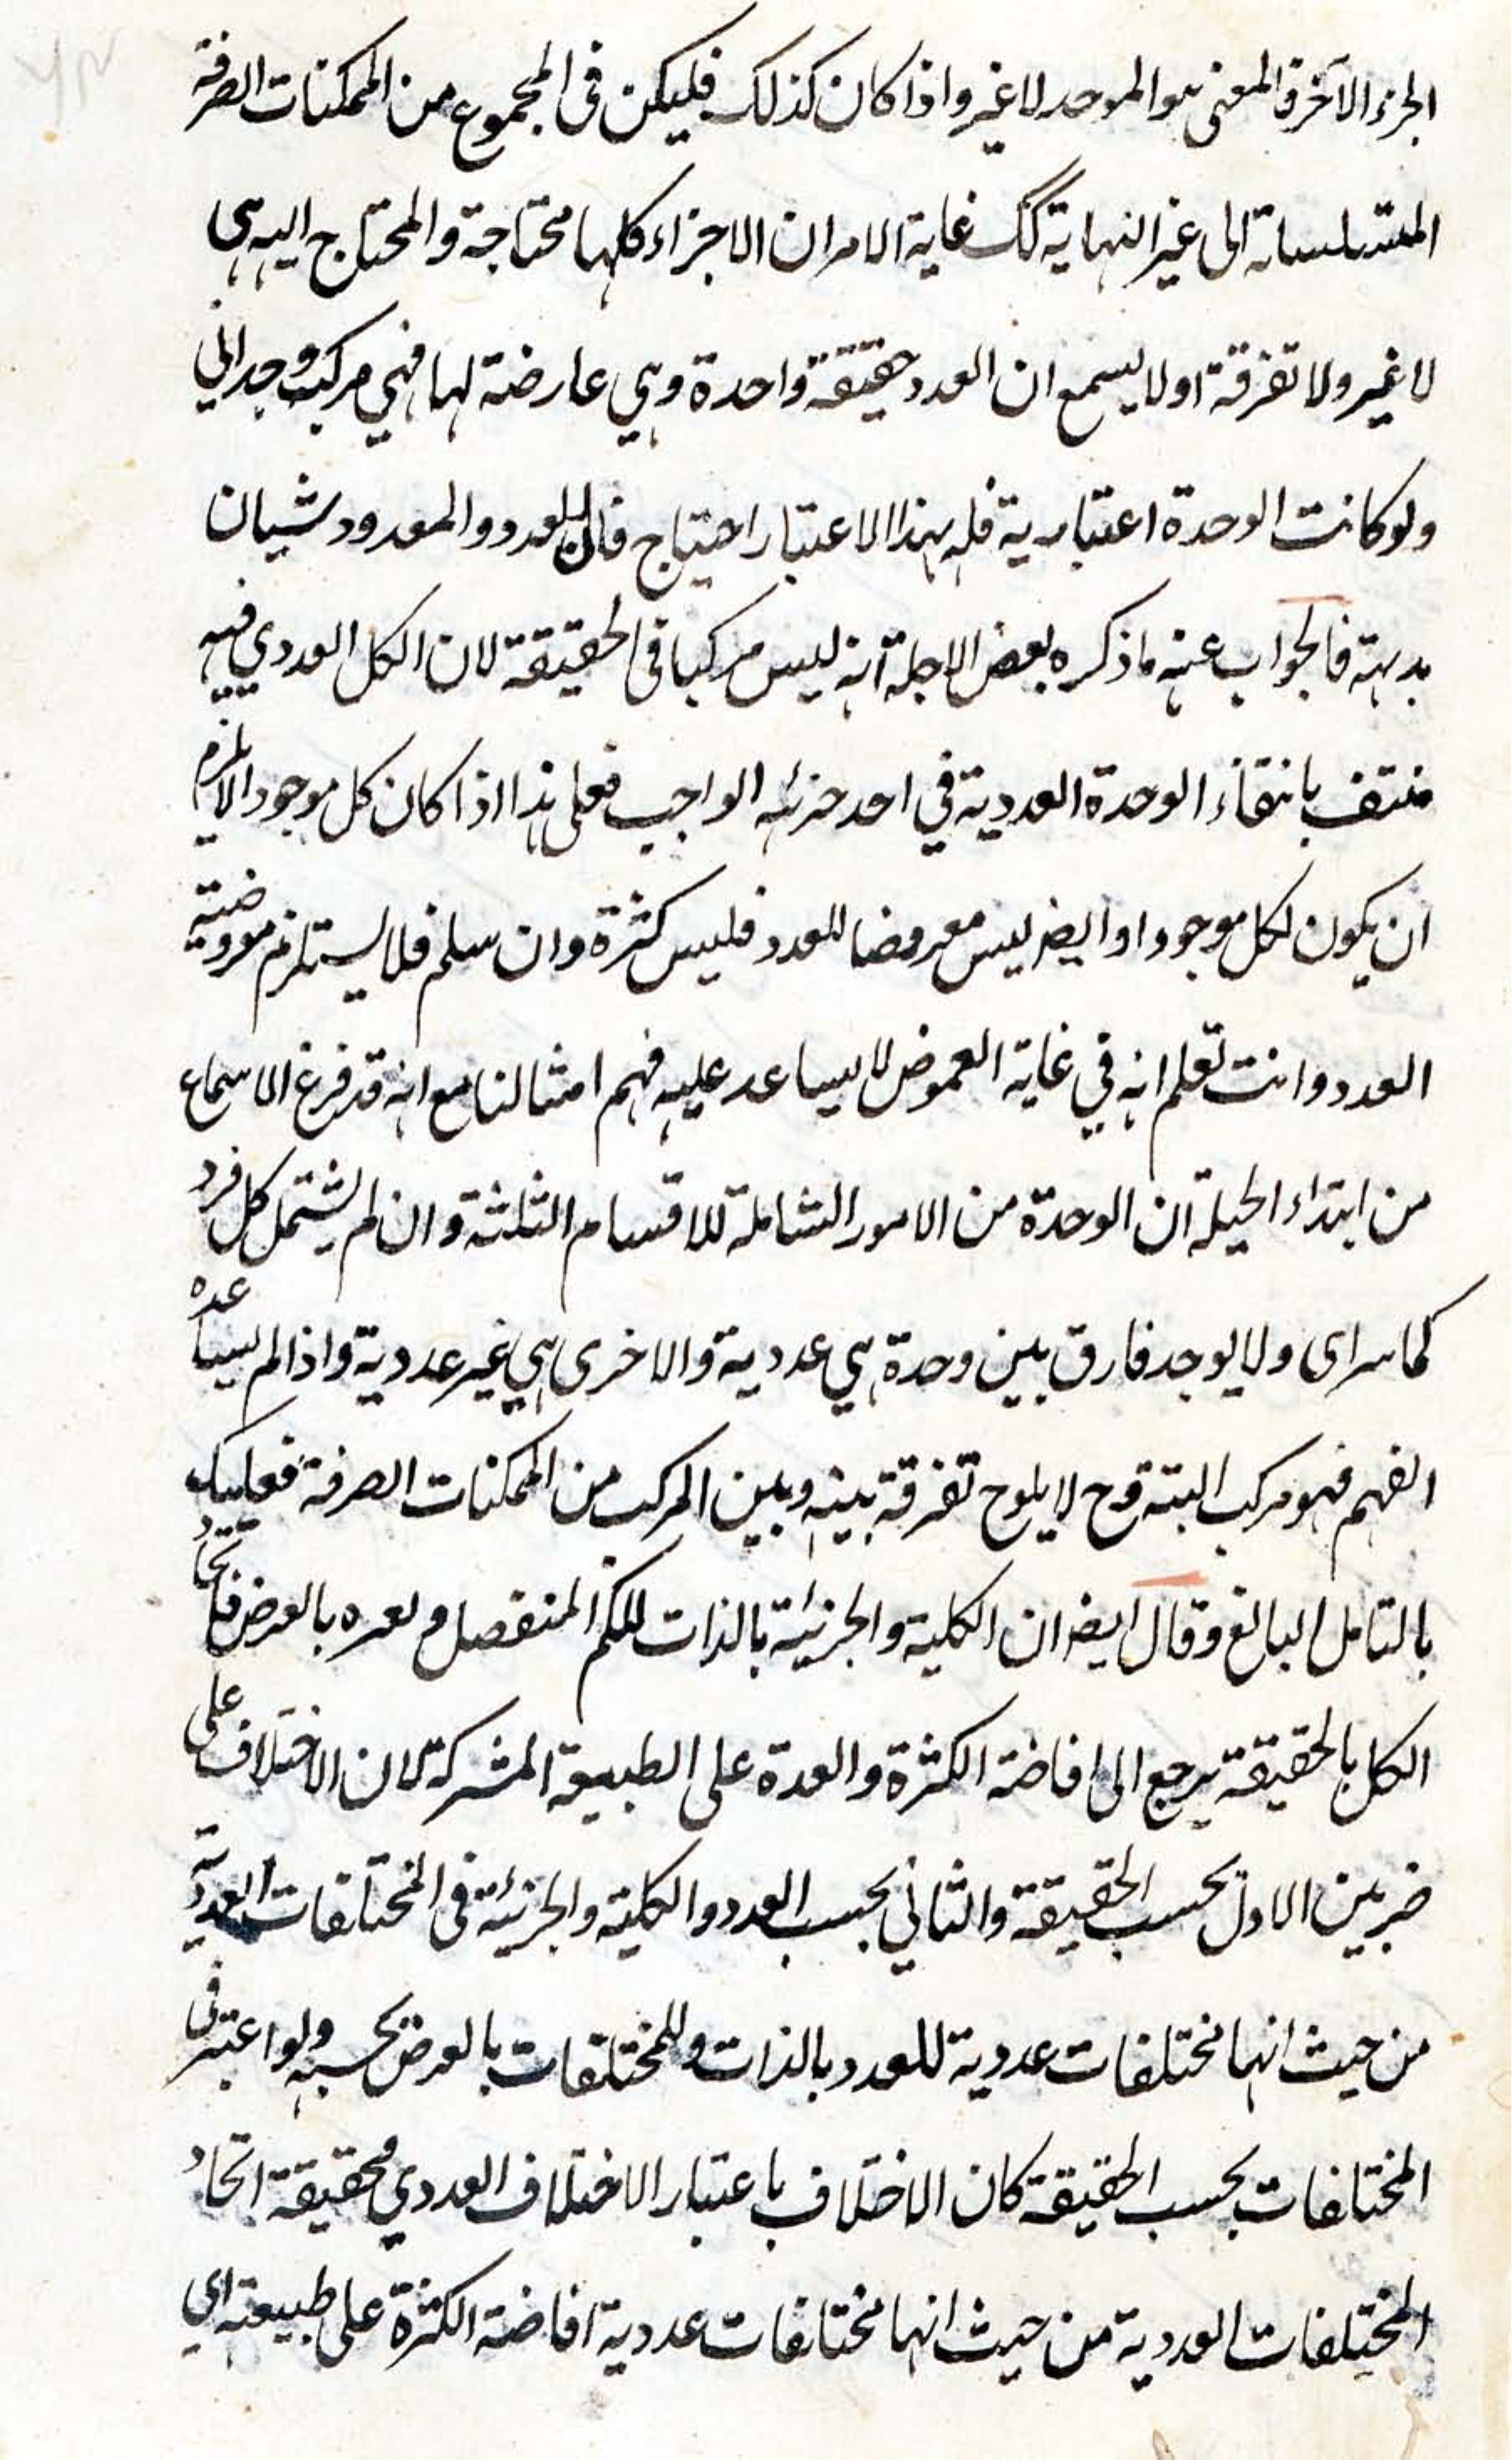 الجزء الآخر فالمعنى هو الموحد لا غير واذا كان كذلك فليكن فى المجموع من الممكنات الصرفة
المتسلسلة الى غير النهاية كك غاية الامر ان الاجزاء كلها محتاجة والمحتاج اليه هى
لا غير ولا تفرقة او لا يسمع ان العدد حقيقة واحدة وهي عارضة لها فهي مركب وجداني
ولو كانت الوحدة اعتبارية فله بهذا الاعتبار احتياج فان العدد والمعدود شيان
بديهة فالجواب عنه ما ذكره بعض الاجلة انه ليس مركبا فى الحقيقة لان الكل العددي فيه
منتف بانتفاء الوحدة العددية في احد جزئه الواجب فعلى هذا اذا كان كل موجودا لا يلزم
ان يكون لكل موجودا وايضا ليس معروضا للعدد فليس كثرة وان سلم فلا يستلزم معروضية
العدد وانت تعلم انه في غاية الغموض لا يساعد عليه فهم امثالنا مع انه قد قرع الاسماع
من ابتداء الحيلة ان الوحدة من الامور الشاملة للاقسام الثلثة وان لم يشتمل كل فرد
كما سراى ولا يوجد فارق بين وحدة هي عددية والاخرى هي غير عددية واذا لم يساعده
الفهم فهو مركب البتة وح لا يلوح تفرقة بينه وبين المركب من الممكنات الصرفة فعليك
بالتامل البالغ وقال ايضا ان الكلية والجزئية بالذات للكم المنفصل ولغيره بالعرض فاتحاد
الكل بالحقيقة يرجع الى افاضة الكثرة والعدة على الطبيعة المشتركة لان الاختلاف على
ضربين الاول بحسب الحقيقة والثاني بحسب العدد والكلية والجزئية فى المختلفات العددية
من حيث انها مختلفات عددية للعدد بالذات وللمختلفات بالعرض بحسبه ولو اعتبر فى
المختلفات بحسب الحقيقة كان الاختلاف باعتبار الاختلاف العددي فحقيقة اتحاد
المختلفات العددية من حيث انها مختلفات عددية افاضة الكثرة على طبيعة اي